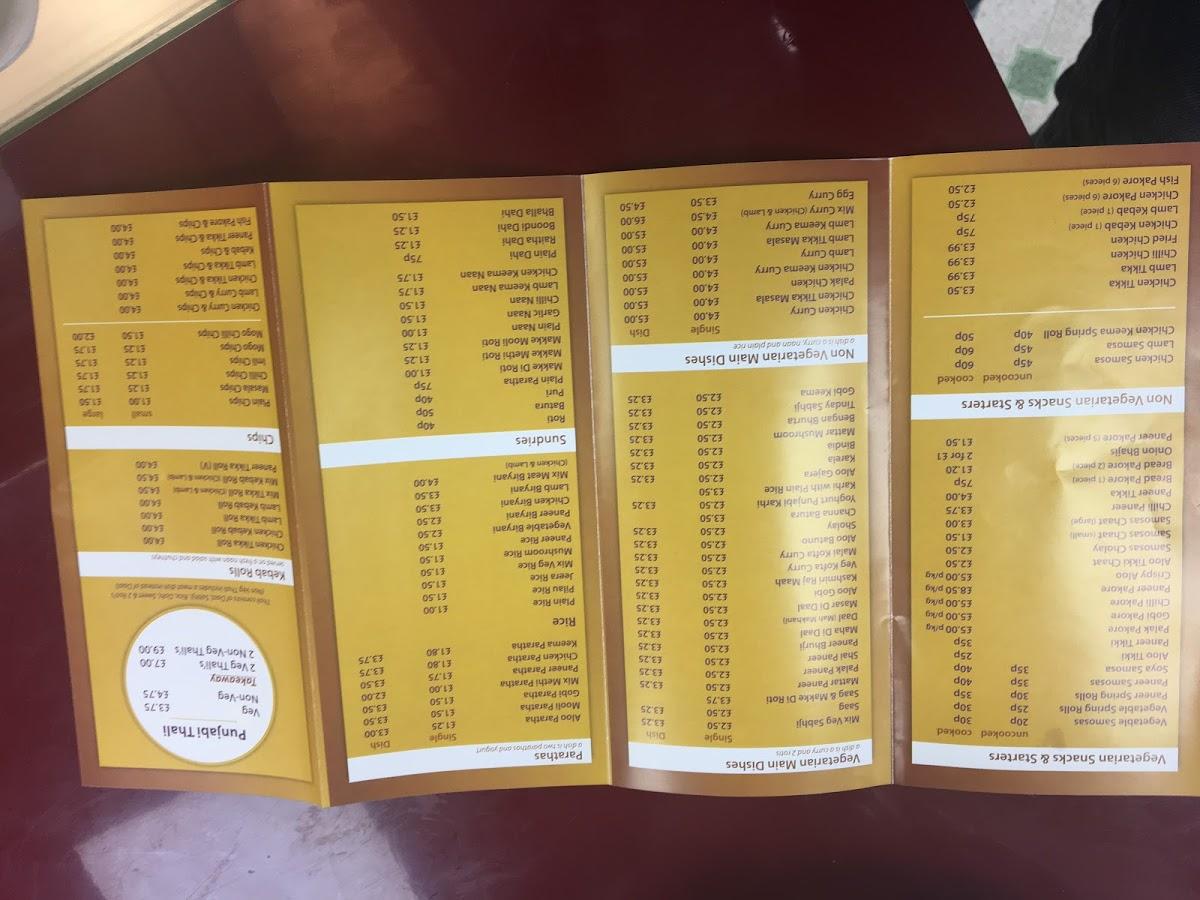 Vegetarian Snacks & Starters
uncooked cooked
Vegetable Samosas 20p 30p
Vegetable Spring Rolls 25p 30p
Paneer Spring Rolls 30p 35p
Paneer Samosas 35p 40p
Soya Samosa 35p 40p
Aloo Tikki 25p
Paneer Tikki 35p
Palak Pakore £5.00 p/kg
Gobi Pakore £5.00 p/kg
Chilli Pakore £5.00 p/kg
Paneer Pakore £8.50 p/kg
Crispy Aloo £5.00 p/kg
Aloo Tikki Chaat £2.50
Samosas Cholay £2.50
Samosas Chaat (small) £1.50
Samosas Chaat (large) £3.00
Chilli Paneer £3.75
Paneer Tikka £4.00
Bread Pakore (1 piece) 75p
Bread Pakore (2 piece) £1.20
Onion Bhajis 2 for £1
Paneer Pakore (5 pieces) £1.50
Non Vegetarian Snacks & Starters
uncooked cooked
Chicken Samosa 45p 60p
Lamb Samosa 45p 60p
Chicken Keema Spring Roll 40p 50p
Chicken Tikka £3.50
Lamb Tikka £3.99
Chilli Chicken £3.99
Fried Chicken £3.99
Chicken Kebab (1 piece) 75p
Lamb Kebab (1 piece) 75p
Chicken Pakore (6 pieces) £2.50
Fish Pakore (6 pieces) £2.50
Vegetarian Main Dishes
a dish is a curry and 2 rotis
Single Dish
Mix Veg Sabhji £2.50 £3.25
Saag £2.50 £3.25
Saag & Makke Di Roti £3.75
Mattar Paneer £2.50 £3.25
Palak Paneer £2.50 £3.25
Shai Paneer £2.50 £3.25
Paneer Bhurji £2.50 £3.25
Maha Di Daal £2.50 £3.25
Daal (Mah Makhani) £2.50 £3.25
Masar Di Daal £2.50 £3.25
Aloo Gobi £2.50 £3.25
Kashmiri Raj Maah £2.50 £3.25
Veg Kofta Curry £2.50 £3.25
Malai Kofta Curry £2.50 £3.25
Aloo Batuno £2.50 £3.25
Sholay £2.50 £3.25
Channa Batura £3.50
Yoghurt Punjabi Karhi £2.50 £3.25
Karhi with Plain Rice £3.50
Aloo Gajera £2.50 £3.25
Karela £2.50 £3.25
Bindia £2.50 £3.25
Mattar Mushroom £2.50 £3.25
Bengan Bhurta £2.50 £3.25
Tinday Sabhji £2.50 £3.25
Gobi Keema £2.50 £3.25
Non Vegetarian Main Dishes
a dish is a curry, naan and plain rice
Single Dish
Chicken Curry £4.00 £5.00
Chicken Tikka Masala £4.00 £5.00
Palak Chicken £4.00 £5.00
Chicken Keema Curry £4.00 £5.00
Lamb Curry £4.00 £5.00
Lamb Tikka Masala £4.00 £5.00
Lamb Keema Curry £4.00 £5.00
Mix Curry (Chicken & Lamb) £4.50 £6.00
Egg Curry £3.50 £4.50
Parathas
a dish is two parathas and yogurt
Single Dish
Aloo Paratha £1.25 £3.00
Mooli Paratha £1.50 £3.50
Gobi Paratha £1.50 £3.50
Mix Methi Paratha £1.00 £2.00
Paneer Paratha £1.75 £3.50
Chicken Paratha £1.80 £3.75
Keema Paratha £1.80 £3.75
Rice
Plain Rice £1.00
Pilau Rice £1.50
Jeera Rice £1.50
Mix Veg Rice £1.50
Mushroom Rice £1.50
Paneer Rice £1.50
Vegetable Biryani £2.50
Paneer Biryani £2.50
Chicken Biryani £3.50
Lamb Biryani £3.50
Mix Meat Biryani £4.00
(Chicken & Lamb)
Sundries
Roti 40p
Batura 50p
Puri 40p
Plain Paratha 75p
Makke Di Roti £1.00
Makke Methi Roti £1.25
Makke Mooli Roti £1.25
Plain Naan £1.00
Garlic Naan £1.50
Chilli Naan £1.50
Lamb Keema Naan £1.75
Chicken Keema Naan £1.75
Plain Dahi 75p
Raitha Dahi £1.25
Boondi Dahi £1.25
Bhalla Dahi £1.50
Punjabi Thali
Veg £3.75
Non-Veg £4.75
Takeaway
2 Veg Thali's £7.00
2 Non-Veg Thali's £9.00
Thali consists of Sabhji, Daal, Rice, Dahi, Sweet & 2 Roti's
(Non Veg Thali includes a meat dish instead of Daal)
Kebab Rolls
served on a fresh naan with salad and chutneys
Chicken Tikka Roll £4.00
Chicken Kebab Roll £4.00
Lamb Tikka Roll £4.00
Lamb Kebab Roll £4.00
Mix Tikka Roll (Chicken & Lamb) £4.50
Mix Kebab Roll (Chicken & Lamb) £4.50
Paneer Tikka Roll (V) £4.00
Chips
small large
Plain Chips £1.00 £1.50
Masala Chips £1.25 £1.75
Chilli Chips £1.25 £1.75
Imli Chips £1.25 £1.75
Mogo Chips £1.25 £1.75
Mogo Chilli Chips £1.50 £2.00
Chicken Curry & Chips £4.00
Lamb Curry & Chips £4.00
Chicken Tikka & Chips £4.00
Lamb Tikka & Chips £4.00
Kebab & Chips £4.00
Paneer Tikka & Chips £4.00
Fish Pakore & Chips £4.00